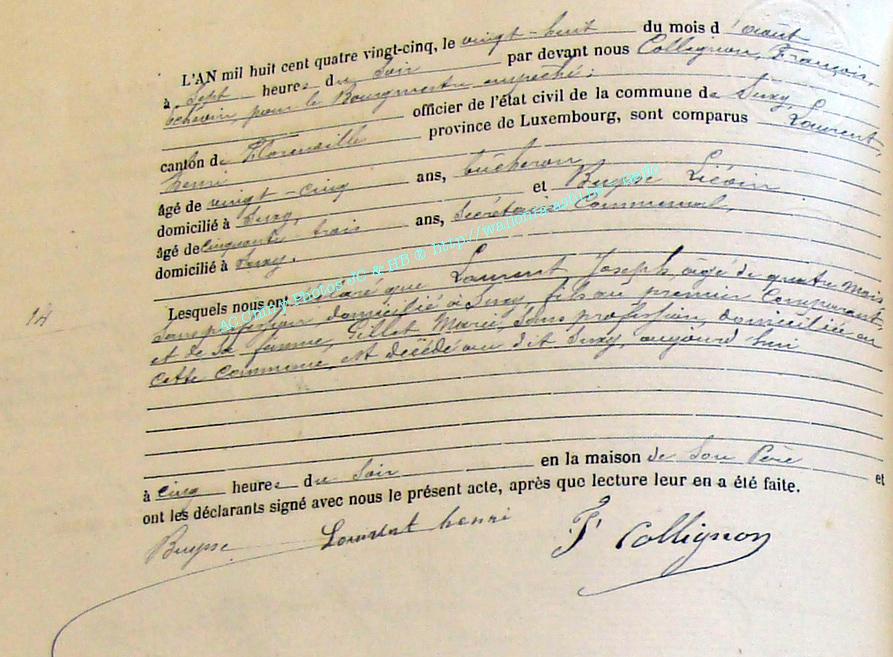 L'AN mil huit cent quatre vingt-cinq, le vingt-huit du mois d'août
à Sept heures du Soir par devant nous Collignon, François,
échevin, pour le Bourgmestre empêché,
officier de l'état civil de la commune de Suxy,
canton de Florenville province de Luxembourg, sont comparus Laurent,
henri
âgé de vingt-cinq ans, bûcheron
domicilié à Suxy, et Buysse Liévin
âgé de cinquante trois ans, Secrétaire Communal,
domicilié à Suxy.
AC Chiny Photos JC & HB ® http://wallonia-asbl.
Lesquels nous ont déclaré que Laurent Joseph, âgé de quatre Mois
Sans profession domicilié à Suxy, fils du premier Comparant,
14
et de sa femme, Gillet Marie, Sans profession, domiciliée en
cette Commune, est décédé au dit Suxy, aujourd'hui
à cinq heures du Soir en la maison de Son Père et
ont les déclarants signé avec nous le présent acte, après que lecture leur en a été faite.
Buysse Laurent henri F. Collignon